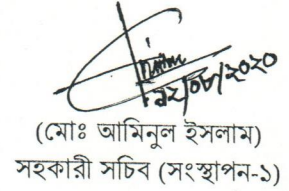 ১২/০৮/২০২০
(মোঃ আমিনুল ইসলাম)
সহকারী সচিব (সংস্থাপন-১)